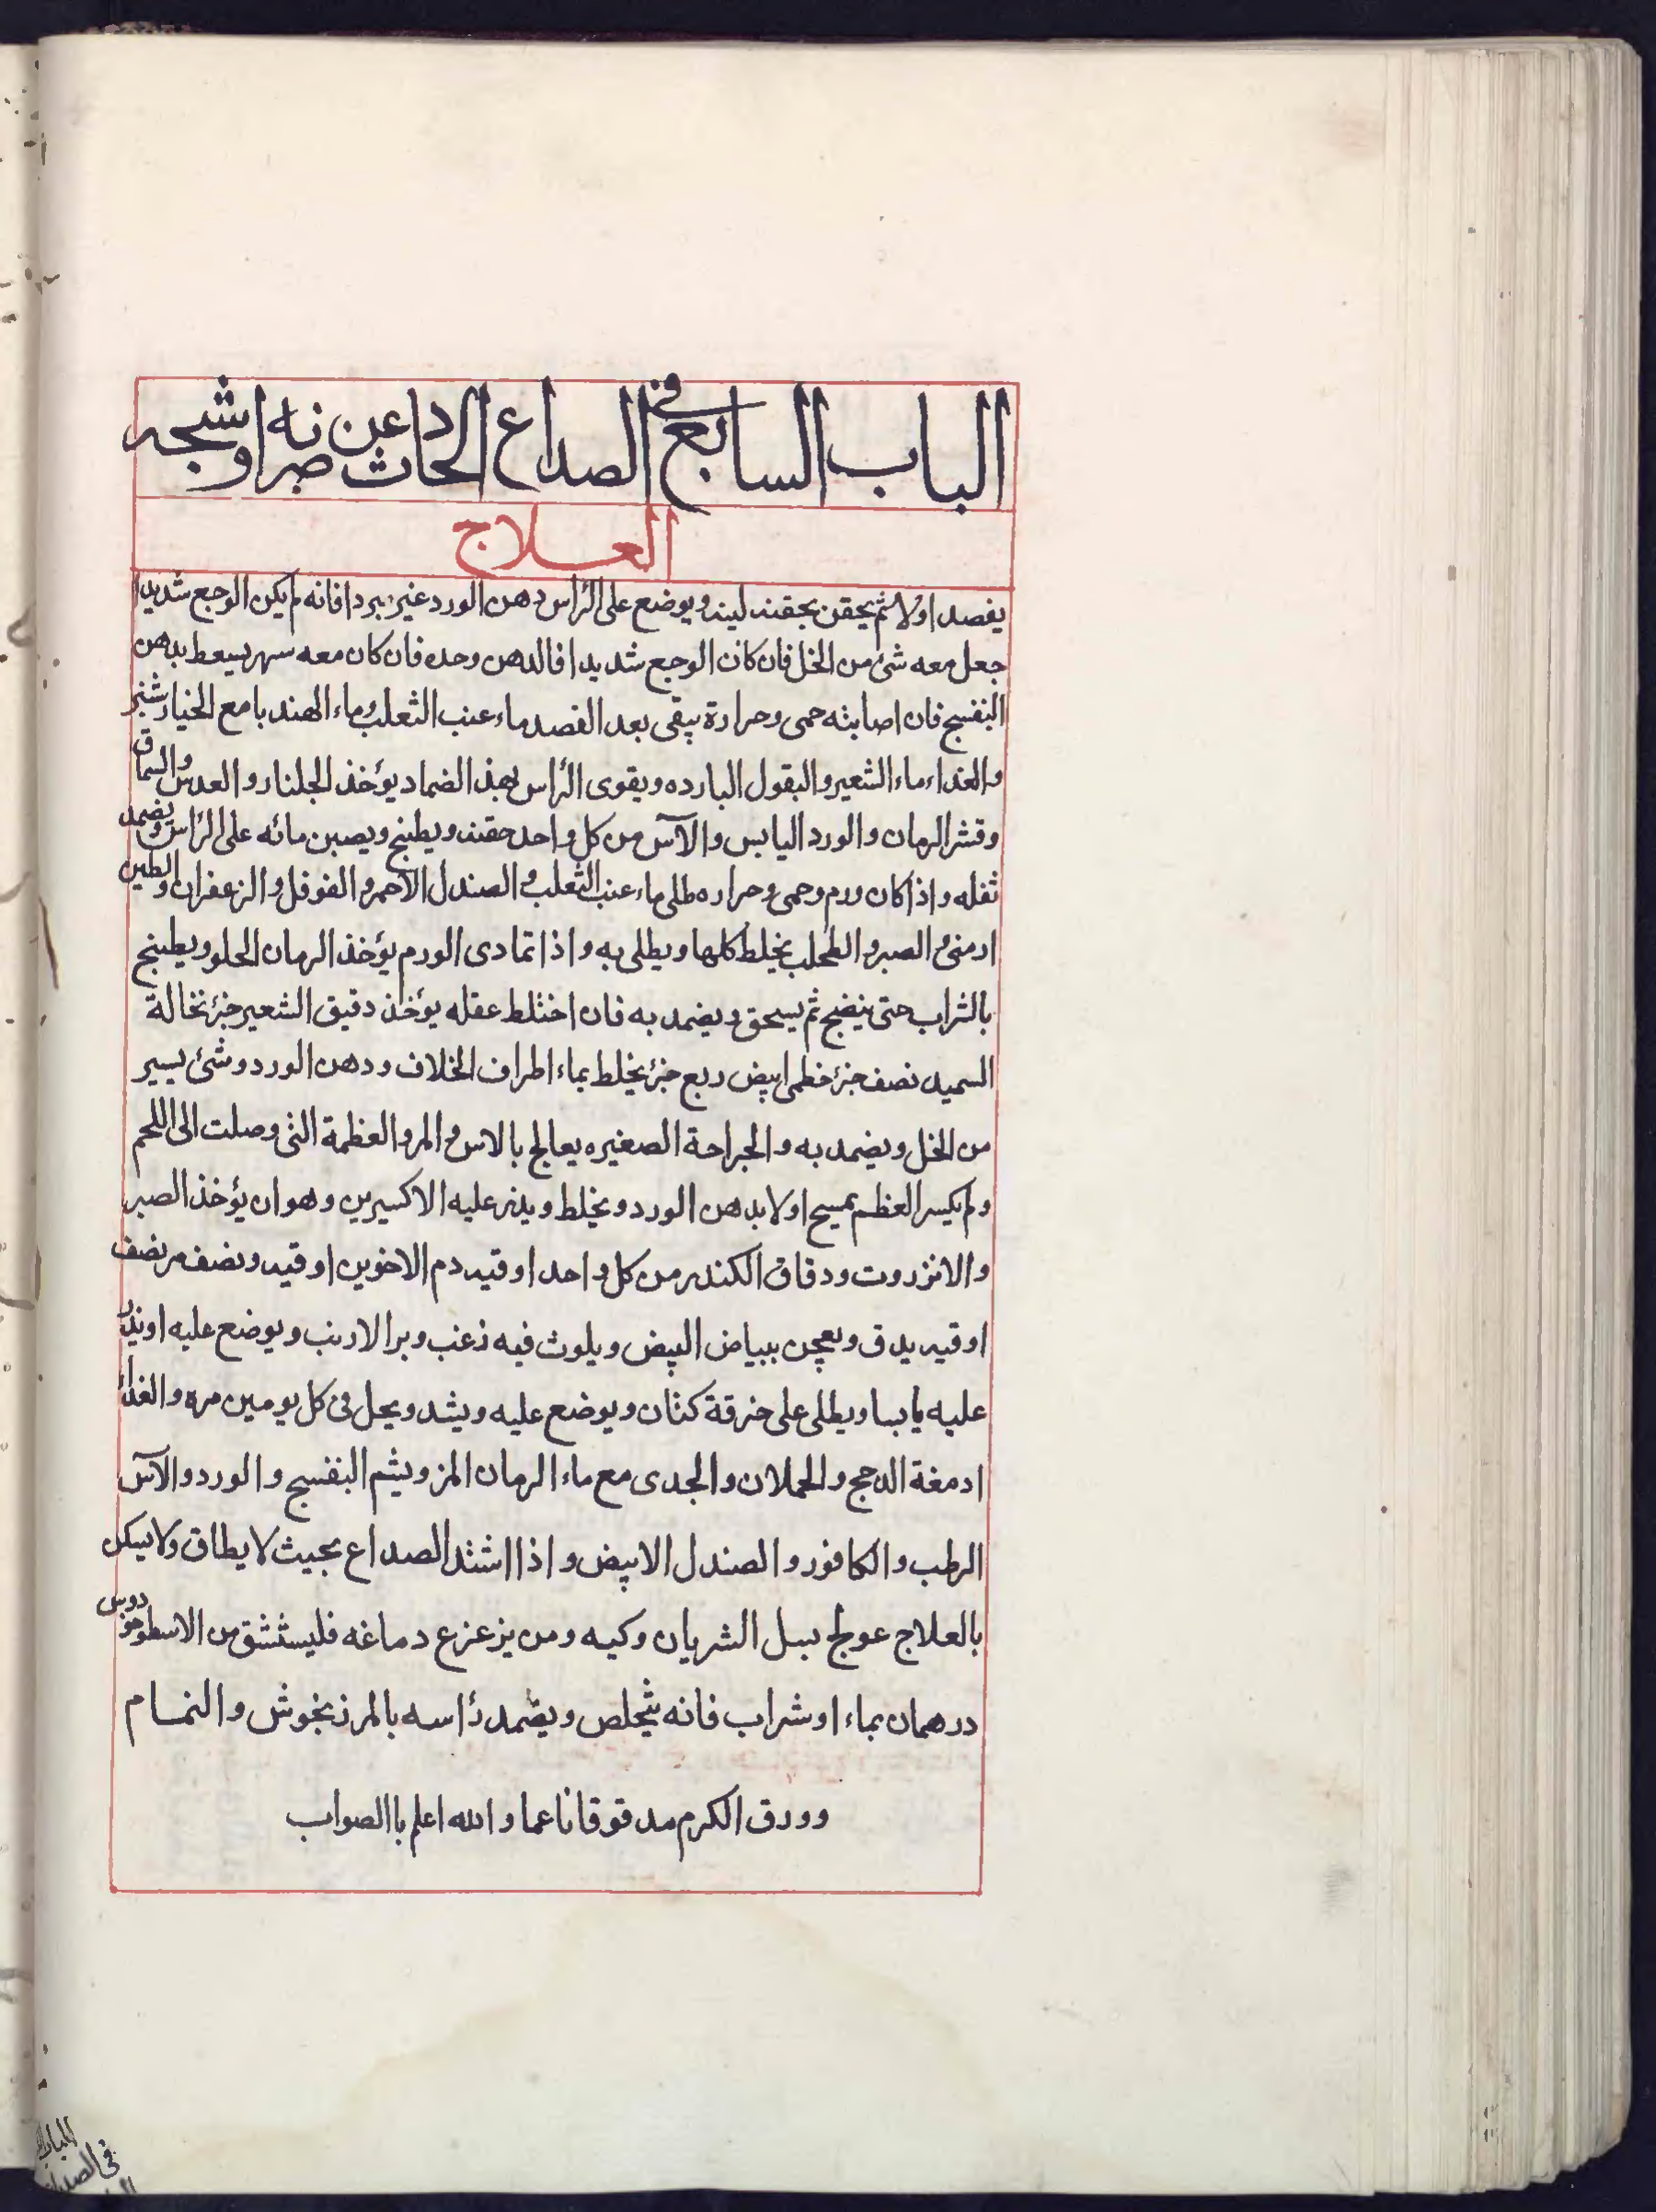 الباب السابع فى الصداع الحادث عن ضربه او شجه
العلاج
يفصد اولا ثم يحقن بحقنه لينه ويوضع على الرأس دهن الورد غير مبرد افانه لم يكن الوجع شديدا
جعل معه شئ من الخل فان كان الوجع شديدا فالدهن وحده فان كان معه سهر يسعط بدهن
البنفسج فان اصابته حمى وحرارة يبقى بعد الفصد ماء عنب الثعلب وماء الهندبا مع الخيار شنبر
والغداء ماء الشعير والبقول البارده ويقوى الرأس بهذ الضماد يؤخذ الجلنار والعدس والسماق
وقشر الرمان والورد اليابس والآس من كل واحد حفنه ويطبخ ويصبن مائه على الرأس ويضمد
ثفله واذا كان ورم وحمى وحراره طلى ماء عنب الثعلب والصندل الاحمر والفوفل والزعفران والطين
ارمنى والصبر والطحلب يخلط كلها ويطلى به واذا تمادى الورم يؤخذ الرمان الحلو ويطبخ
بالشراب حتى ينضج ثم يسحق ويضمد به فان اختلط عقله يؤخذ دقيق الشعير جزئ نخالة
السميد نصف جزئ خطمى ابيض ربع جزئ يخلط بماء اطراف الخلاف ودهن الورد وشئ يسير
من الخل ويضمد به والجراحة الصغيره يعالج بالاس والمر والعظمة التى وصلت الى اللحم
ولم يكسر العظم يمسح اولا بدهن الورد ويخلط ويذر عليه الاكسيرين وهو ان يؤخذ الصبر
والانزروت ودقاق الكندر من كل واحد اوقيه دم الاخوين اوقيه ونصف مر نصف
اوقيه يدق ويعجن ببياض البيض ويلوث فيه زغب وبر الارنب ويوضع عليه او يذر
عليه يابسا ويطلى على خرقة كتان ويوضع عليه ويشد ويحل فى كل يومين مره والغداء
ادمغة الدجج والحملان والجدى مع ماء الرمان المز ويشم البنفسج والورد والآس
الرطب والكافور والصندل الابيض واذا اشتد الصداع بحيث لا يطاق ولا يسكن
بالعلاج عولج بسل الشريان وكيه ومن يزعزع دماغه فليستشق من الاسطوخودوس
درهمان بماء او شراب فانه يتخلص ويضمد رأسه بالمرزنجوش والنمام
وورق الكرم مدقوقا ناعما والله اعلم باالصواب